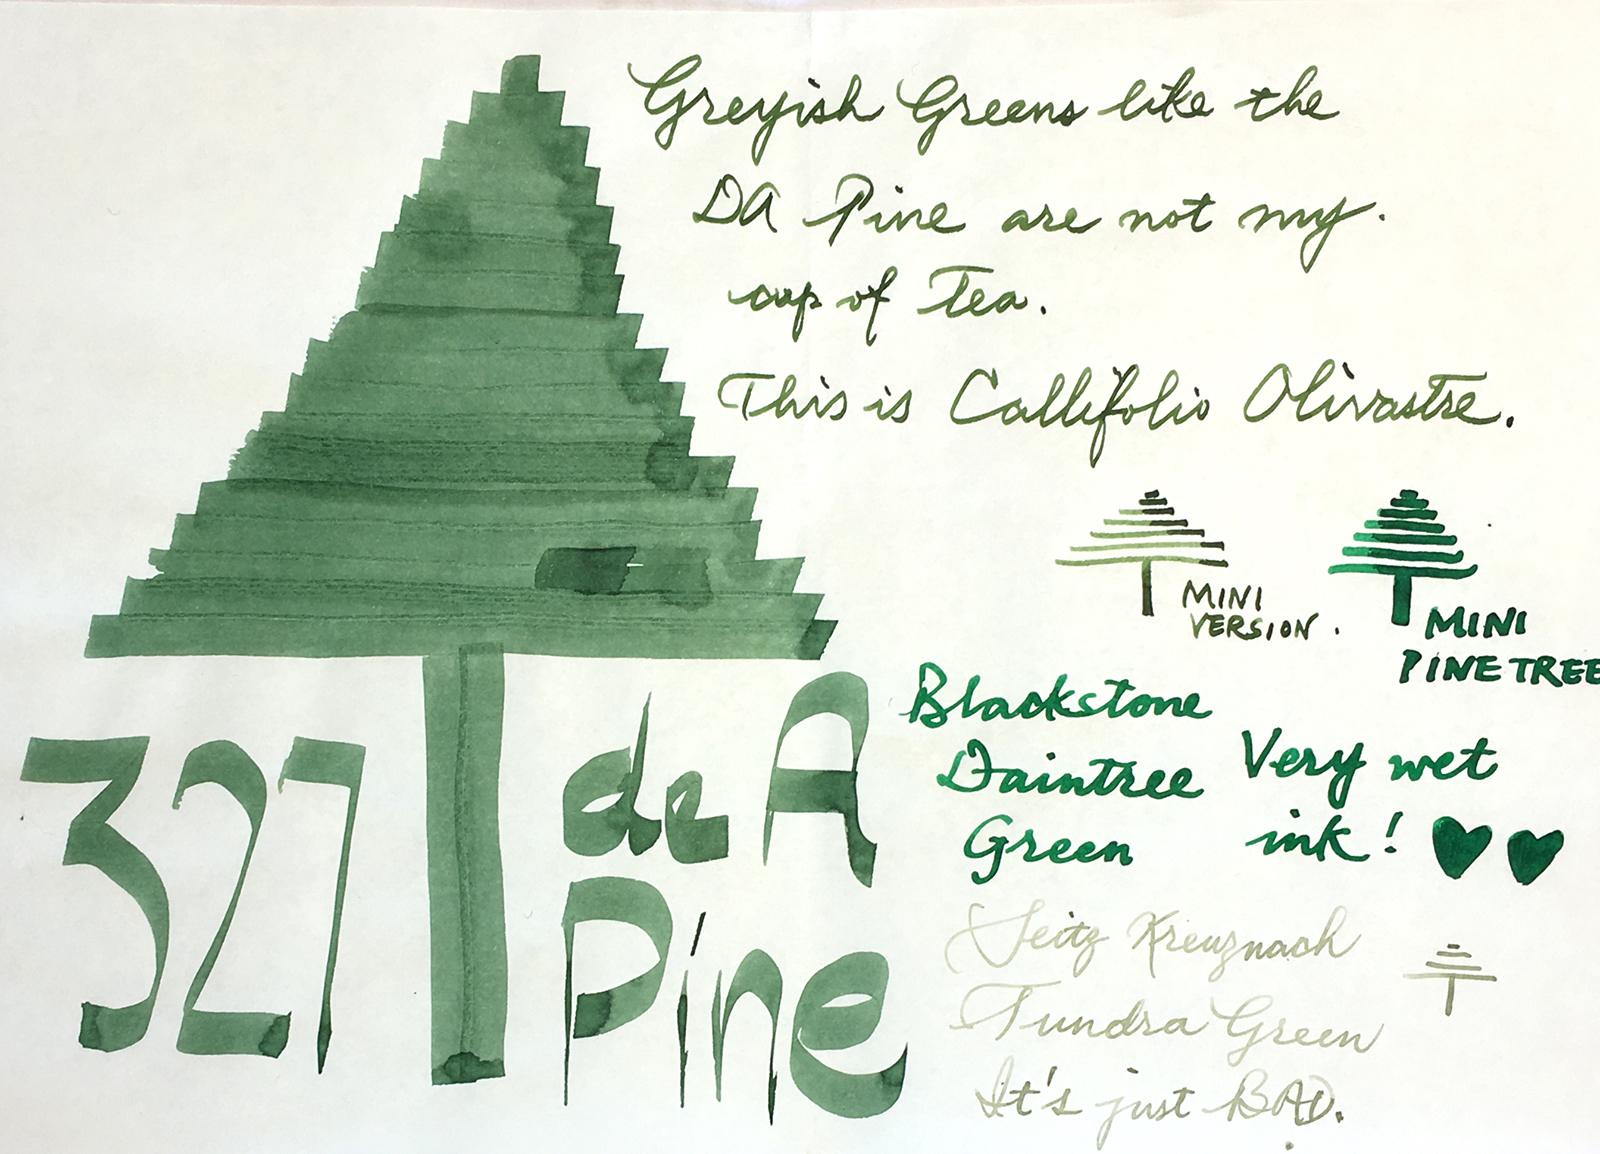 Greyish Greens like the
DA Pine are not my
cup of Tea.
This is Callifolio Olivastre.
MINI
VERSION.
MINI
PINE TREE
Blackstone
Daintree
Green
Very wet
ink!
327
de A
Pine
Seitz Kreuznach
Tundra Green
It's just BAD.